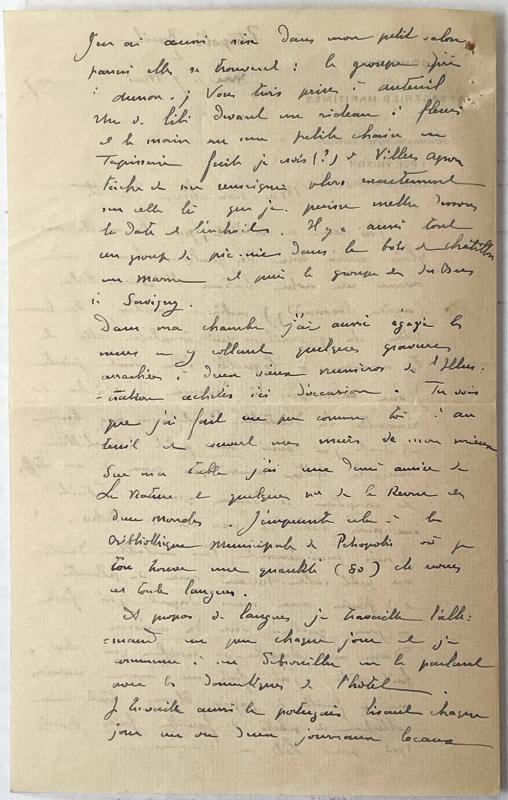 J'en ai aussi six dans mon petit salon
parmi elles se trouvent : le groupe pris
à ; Vous trois prises à Auteuil
Une de Lili devant un rideau à fleurs
et la main sur une petite chaise en
Tapisserie faite je crois (?) à Villers
tâche de me renseigner plus exactement
sur celle là que je puisse mettre dessous
la date et l'endroit. Il y a aussi tout
un groupe de pic-nic dans le bois de Châtillon
sur Marne et puis le groupe des
à Savigny.
Dans ma chambre j'ai aussi égayé les
murs en y collant quelques gravures
arrachées à deux vieux numéros de l'Illus-
-tration achetés ici d'occasion. Tu vois
que j'ai fait un peu comme toi à Au
teuil et couvert mes murs de mon mieux
Sur ma table j'ai une demi année de
La Nature et quelques nos de la Revue des
deux Mondes. J'emprunte cela à la
Bibliothèque Municipale de Petropolis où je
trouve une quantité (80) de revues
en toute langues.
A propos de langues je travaille l'alle-
-mand un peu chaque jour et je
commence à me débrouiller en le parlant
avec les domestiques de l'hôtel.
Je travaille aussi le portugais lisant chaque
jour un ou deux journaux locaux